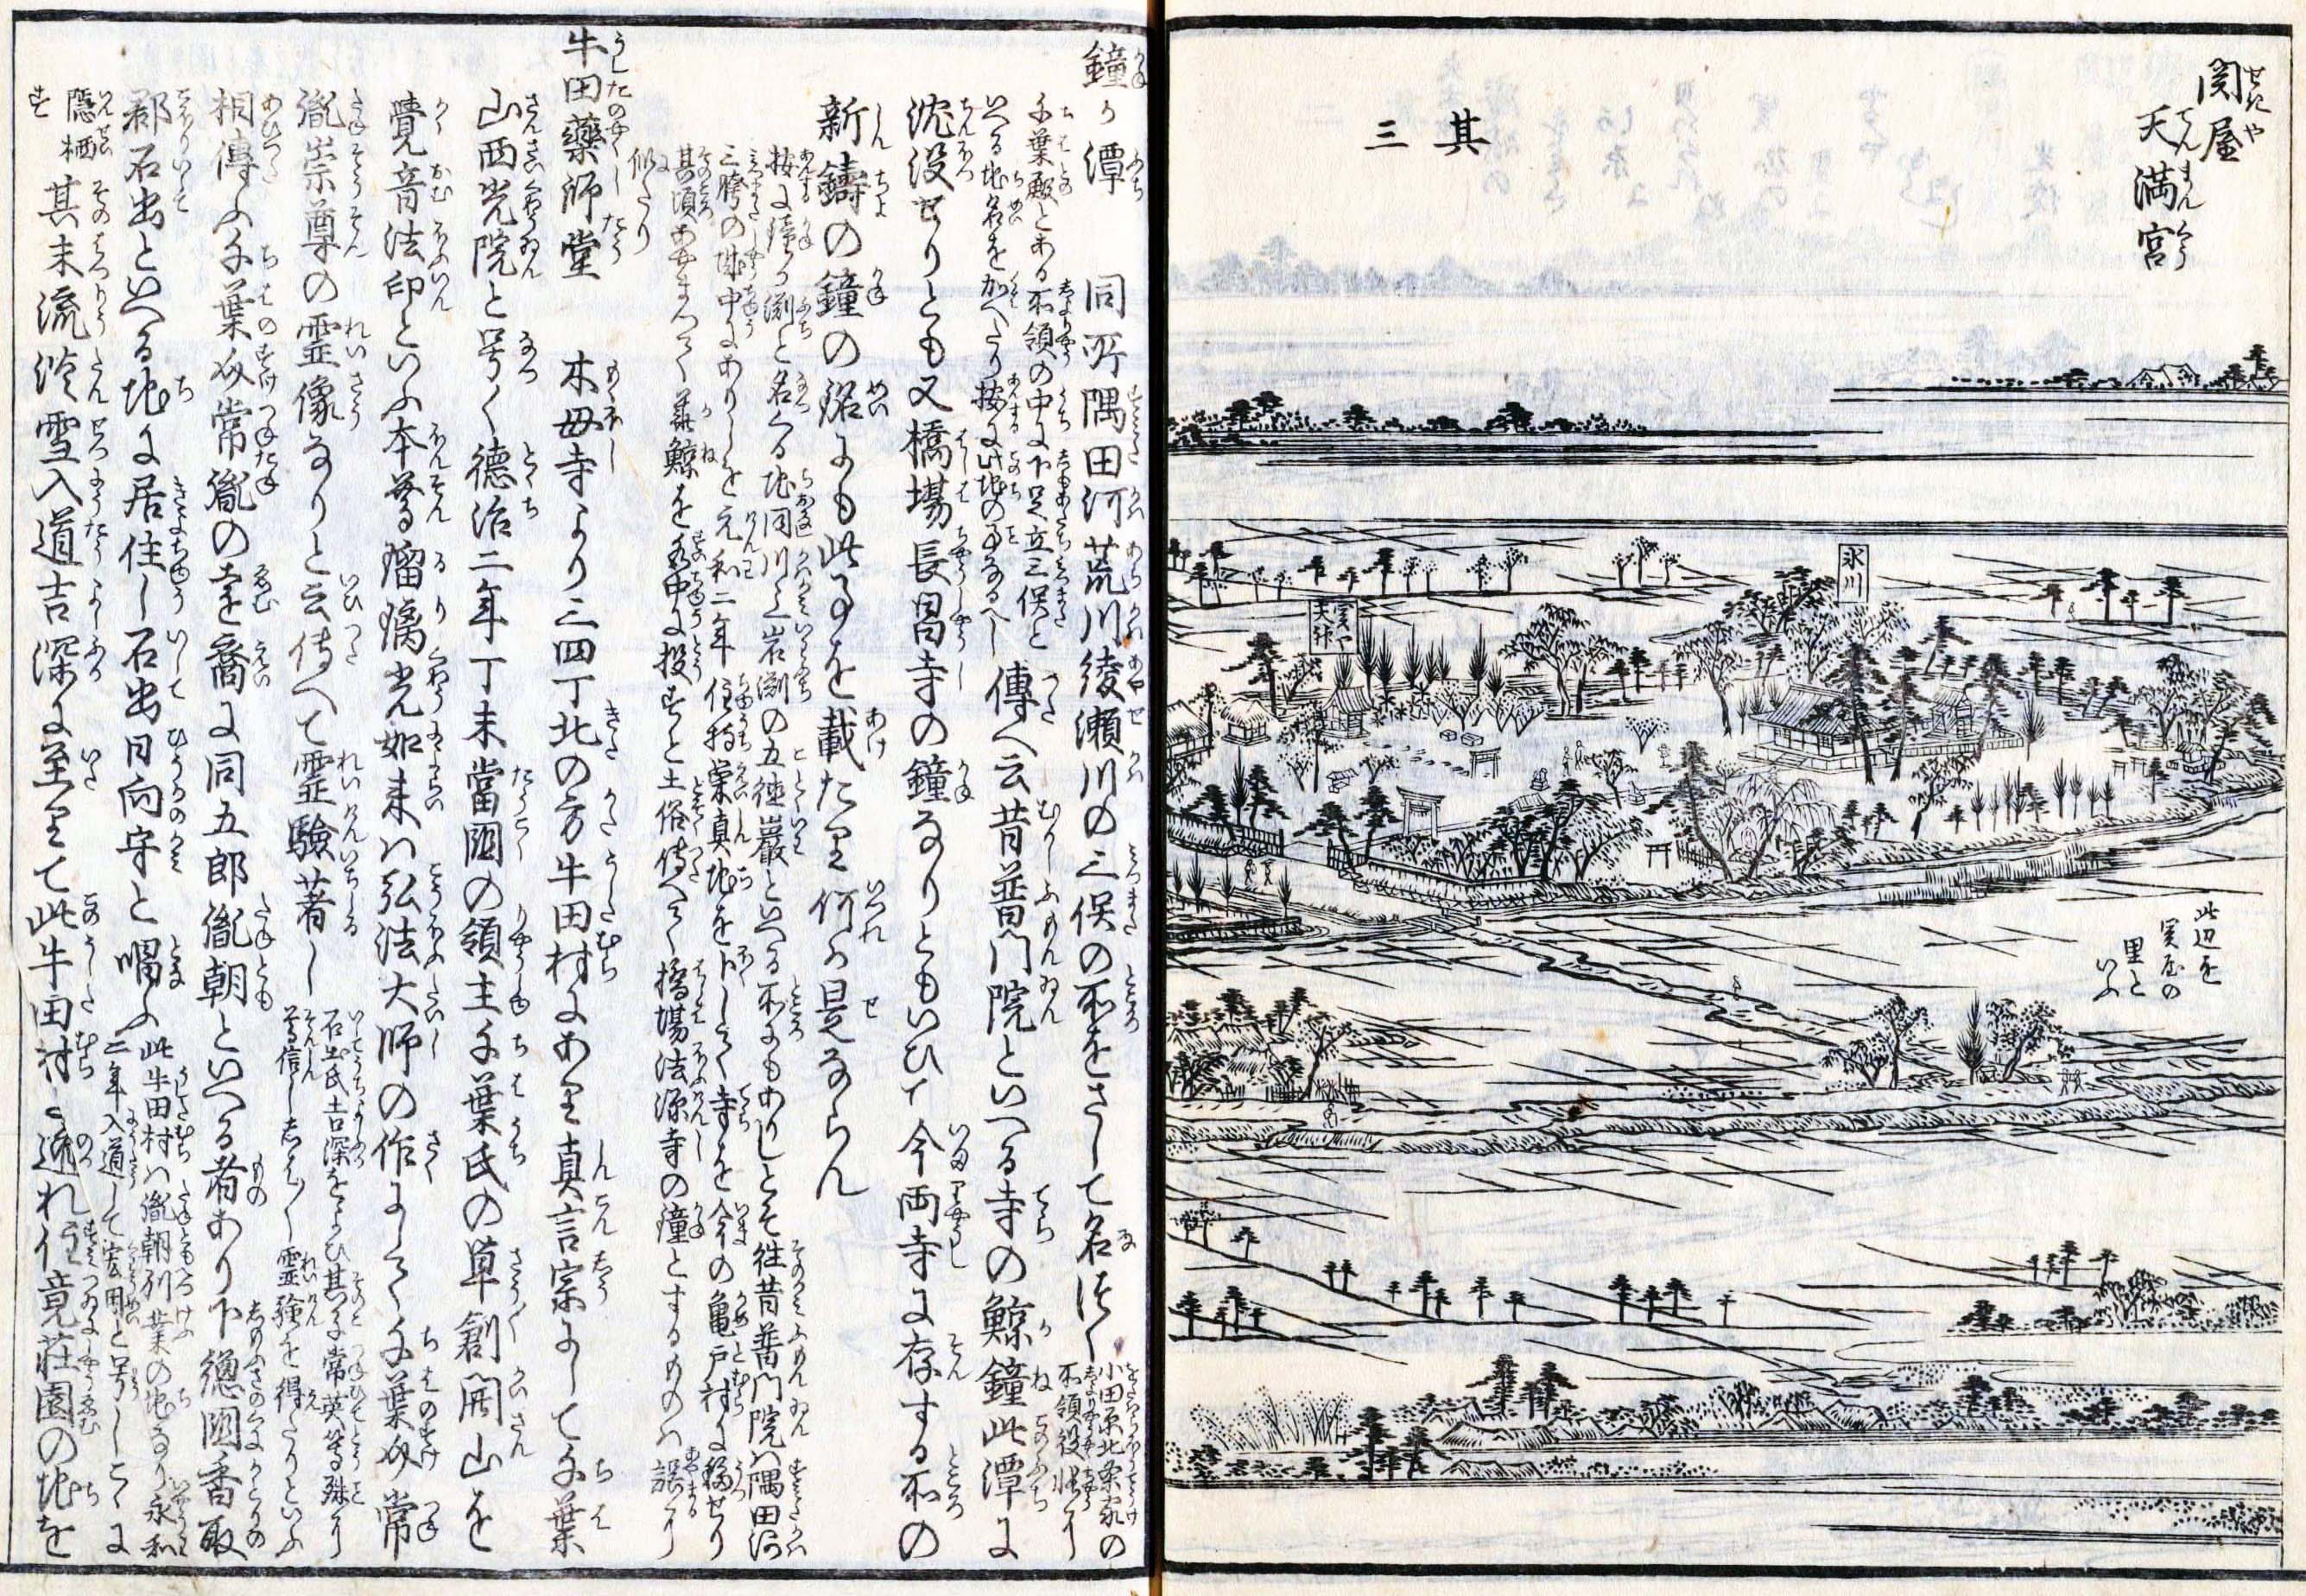 関屋
天満宮
其三
氷川
関や
天神
此辺を
関屋の
里と
いふ
鐘か潭　同所隅田河荒川綾瀬川の三俣の所をさして名つく
小田原北条家の
所領役帳に
千葉殿とある所領の中に下足立三俣と
いへる地名を加へたり按に此地の事なるへし
傳へ云昔普門院といへる寺の鯨鐘此潭に
沈没せりとも又橋場長昌寺の鐘なりともいひて今両寺に存する所の
新鑄の鐘の銘にも此事を載たり何か是ならん
按に鐘か淵と名くる地同川上岩淵の五徳巌といへる所にもありしとそ往昔普門院ハ隅田河
三胯の城中にありしを元和二年住持榮真地を卜して寺を今の亀戸村に移せり
其頃あやまつて華鯨を水中に投すと土俗傳へて橋場法源寺の鐘とするものハ誤に
似たり
牛田藥師堂　木母寺より三四丁北の方牛田村にあり真言宗にして千葉
山西光院と号く徳治二年丁未當國の領主千葉氏の草創開山を
覺音法印といふ本尊瑠璃光如来ハ弘法大師の作にして千葉介常
胤崇尊の霊像なりと云傳へて霊驗著し
石出氏吉深をよひ其子常英等殊に
尊信ししは〱霊驗を得たりといふ
相傳ふ千葉介常胤の遠裔に同五郎胤朝といへる者あり下總國香取
郡石出といへる地に居住し石出日向守と唱ふ
此牛田村ハ胤朝別業の地なり永和
二年入道して宏用と号しこゝに
隱栖
す
其末流淡雪入道吉深に至りて此牛田村に逃れ住竟莊園の地を